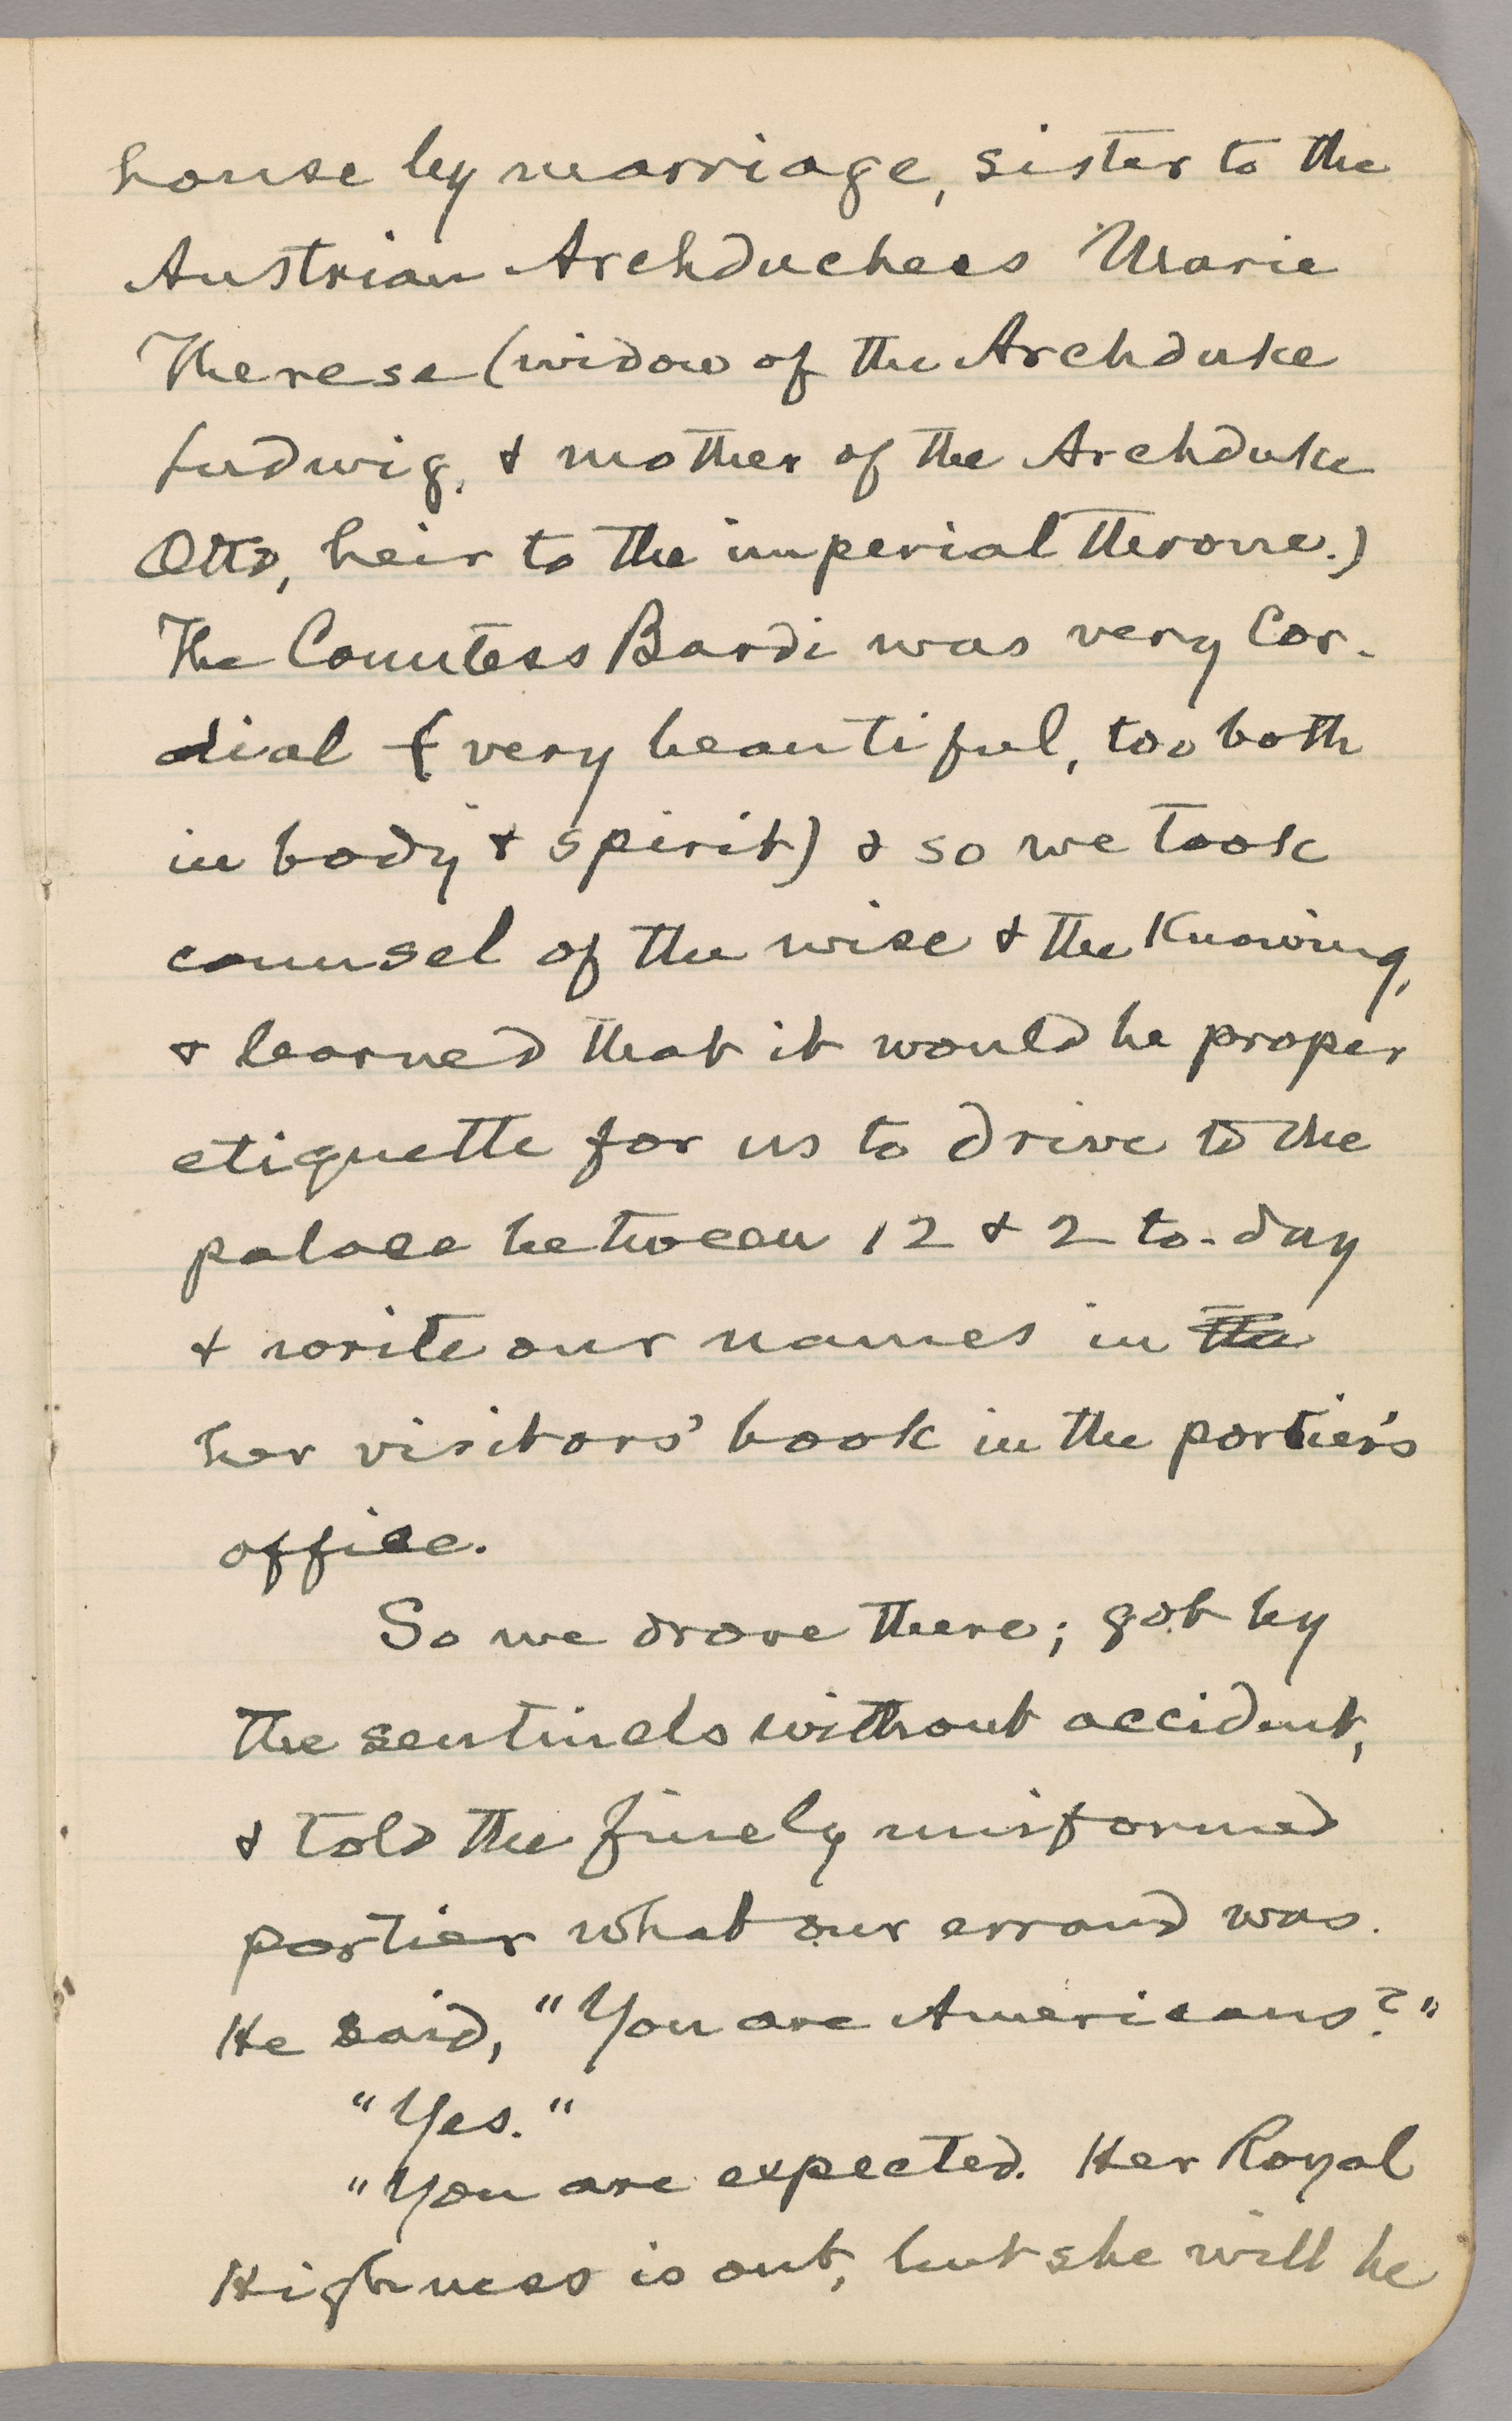 house by marriage, sister to the
Austrian Archduchess Marie
Therese (widow of the Archduke
Ludwig, & mother of the Archduke
Otto, heir to the imperial throne.)
The Countess Bardi was very cor-
dial (very beautiful, too both
in body & spirit) & so we took
counsel of the wise & the knowing,
& learned that it would be proper
etiquette for us to drive to the
palace between 12 & 2 to-day
& write our names in the
her visitors' book in the portier's
office.
So we drove there; got by
the sentinels without accident,
& told the finely uniformed
portier what our errand was.
He said, "You are Americans?"
"Yes."
"You are expected. Her Royal
Highness is out, but she will be